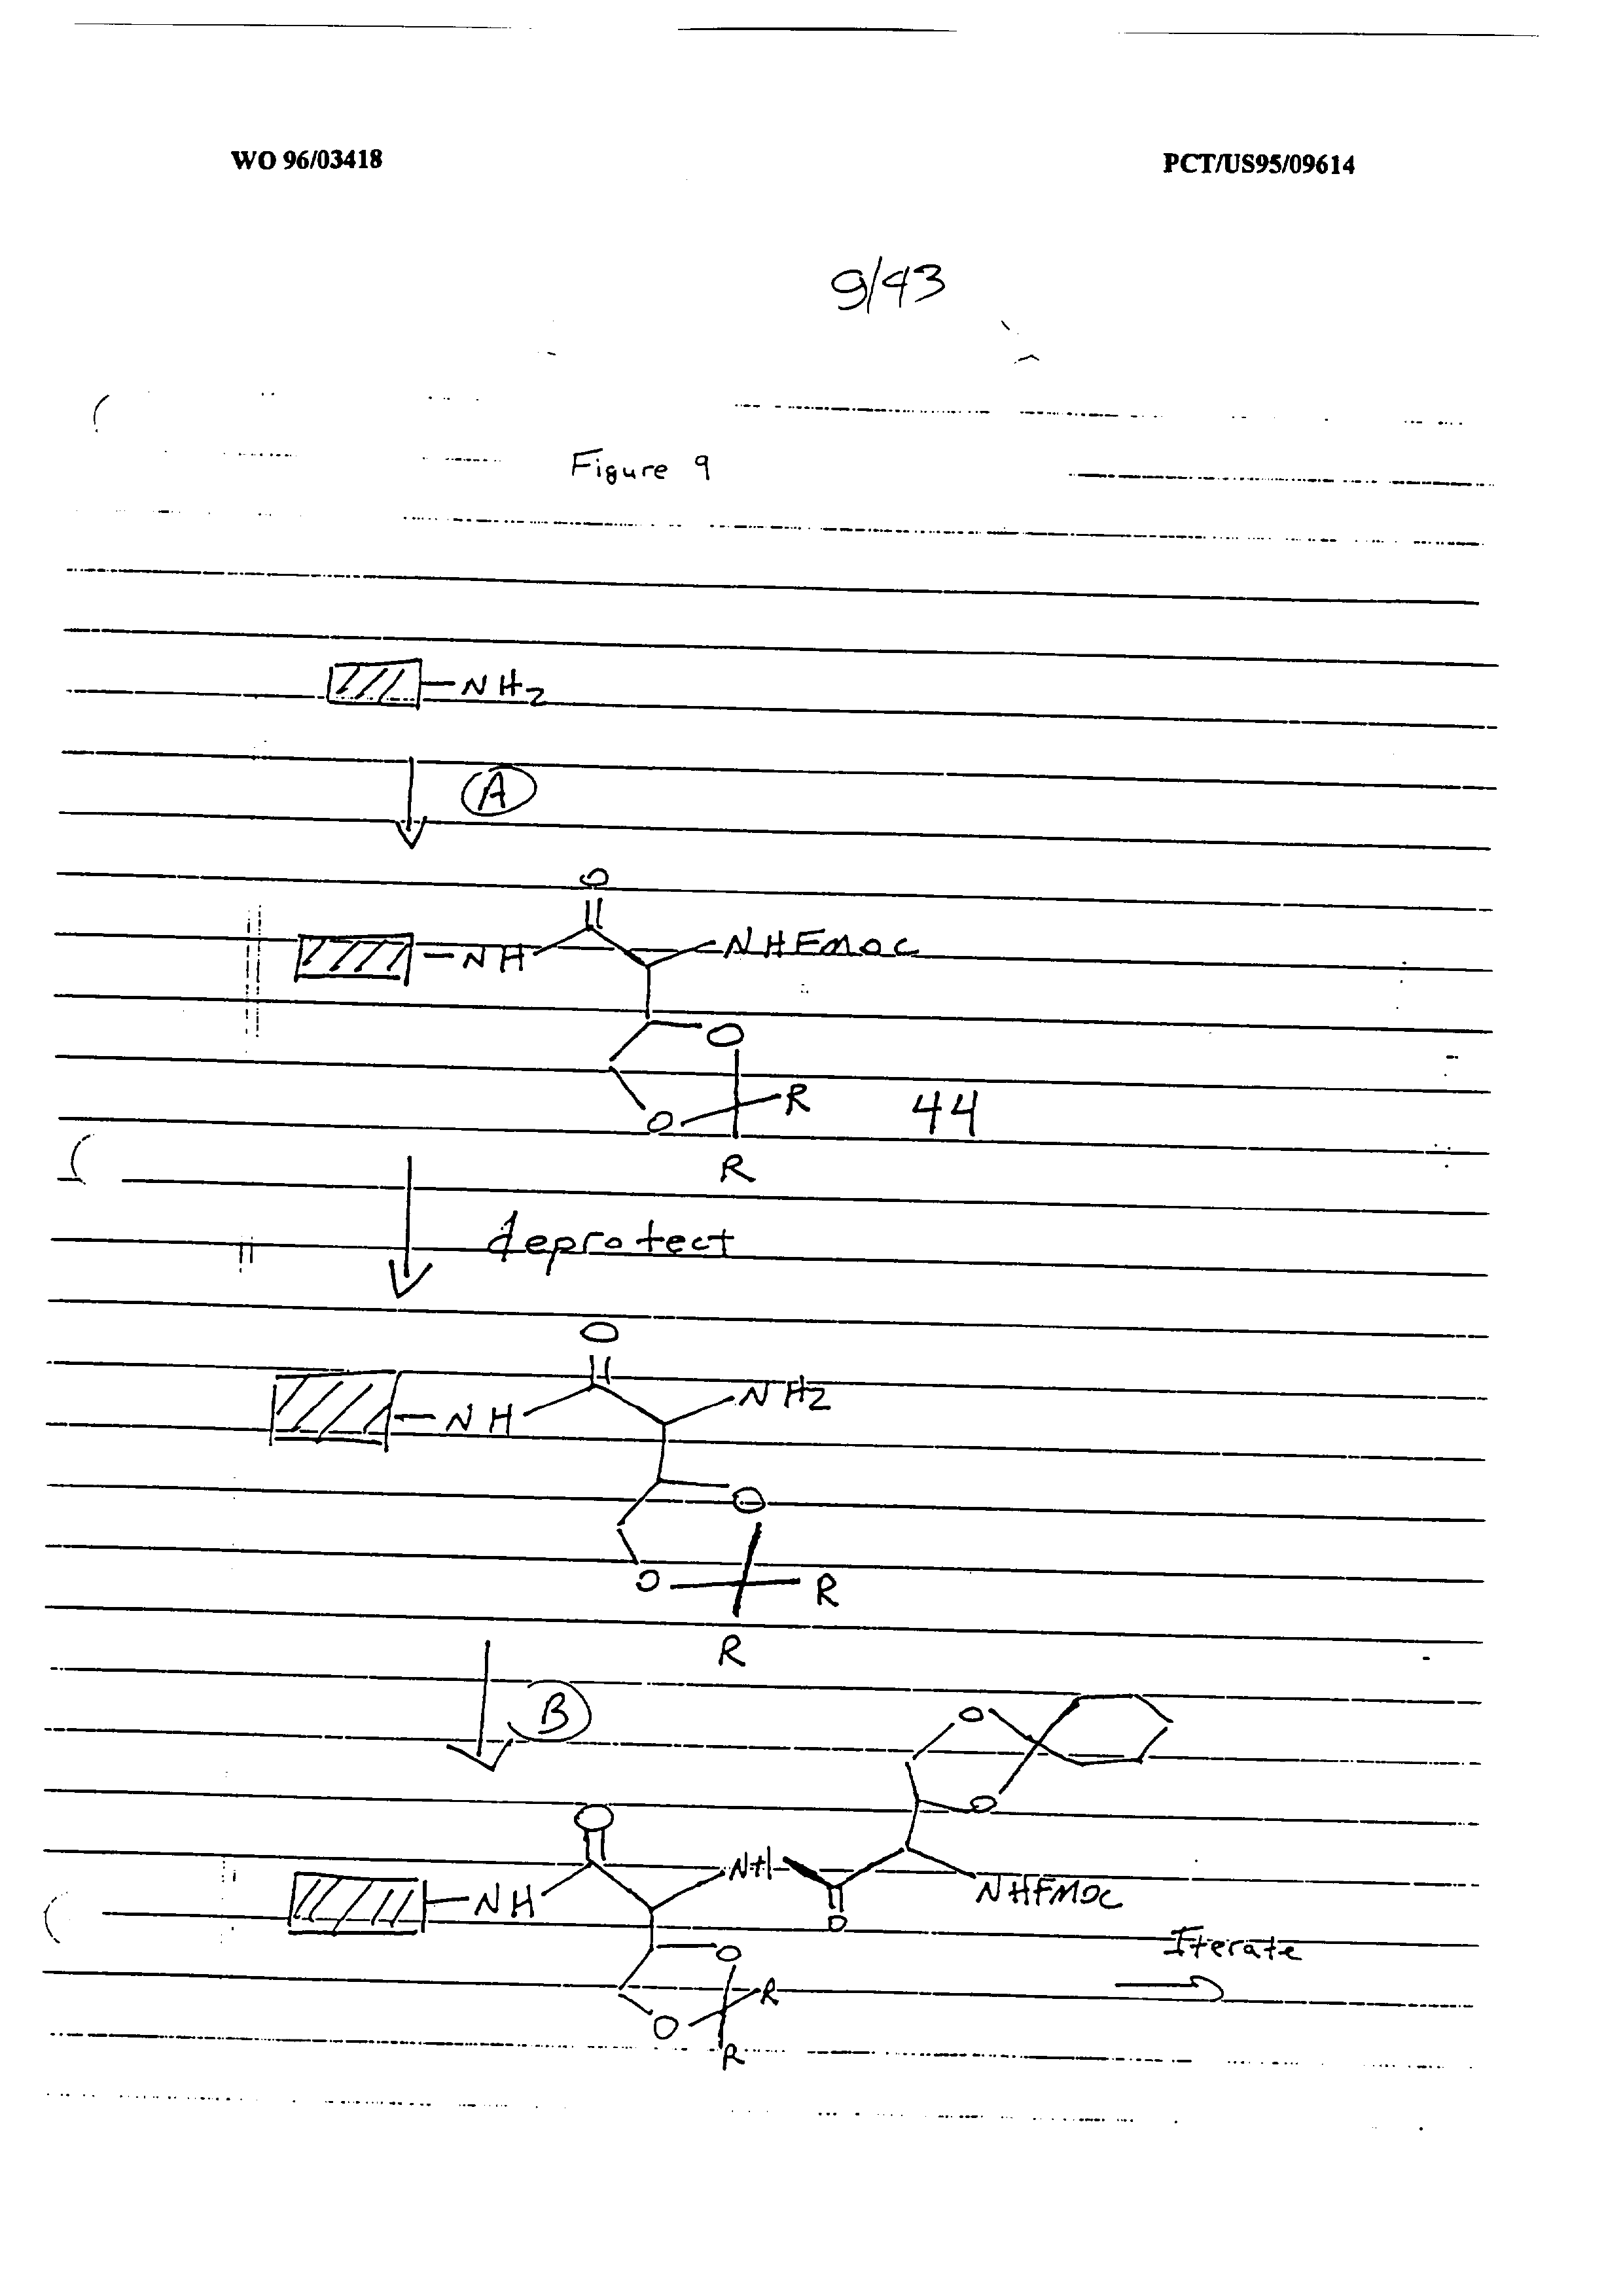 WO 96/03418 PCT/US95/09614
9/43
Figure 9
NH2
A
O
NH NHFMOC
O
O R 44
R
deprotect
O
NH NH2
O
O R
R
B
O
O
O
NH NH NHFMOC
O
Iterate
O
R
O
R